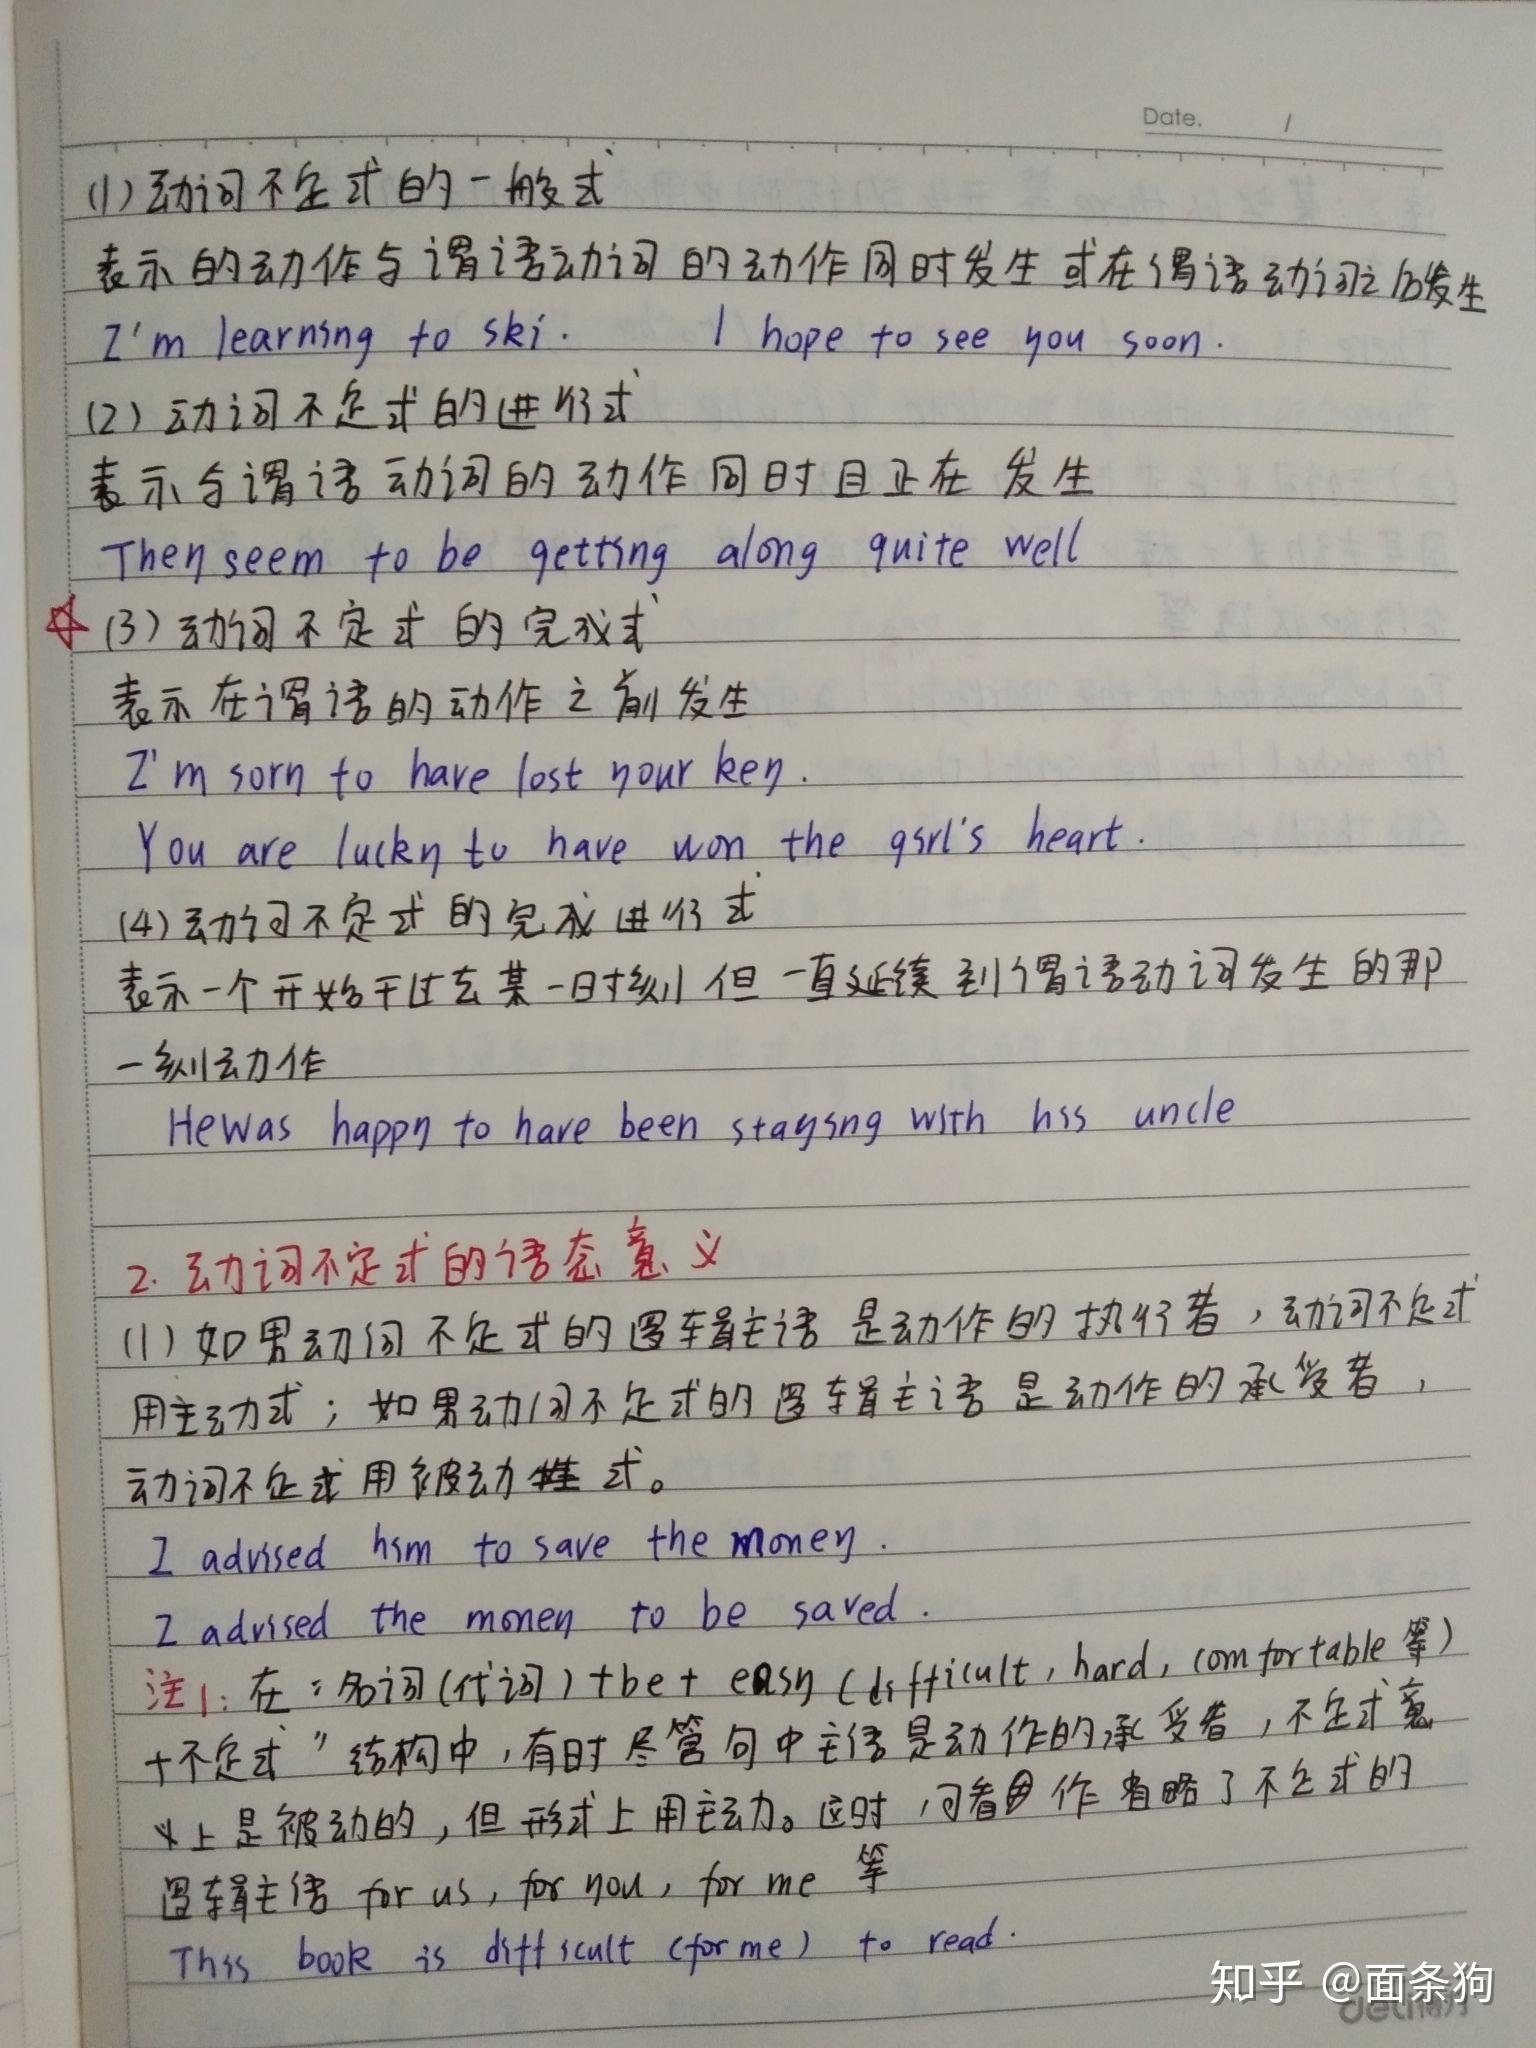 Date. /
(1) 动词不定式的一般式
表示的动作与谓语动词的动作同时发生或在谓语动词之后发生
I'm learning to ski. I hope to see you soon.
(2) 动词不定式的进行式
表示与谓语动词的动作同时且正在发生
They seem to be getting along quite well
(3) 动词不定式的完成式
表示在谓语的动作之前发生
I'm sorry to have lost your key.
You are lucky to have won the girl's heart.
(4) 动词不定式的完成进行式
表示一个开始于过去某一时刻但一直延续到谓语动词发生的那
一刻动作
He was happy to have been staying with his uncle
2. 动词不定式的语态意义
(1) 如果动词不定式的逻辑主语是动作的执行者，动词不定式
用主动式；如果动词不定式的逻辑主语是动作的承受者，
动词不定式用被动式。
I advised him to save the money.
I advised the money to be saved.
注1: 在“名词(代词)+be+easy (difficult, hard, comfortable等)
+不定式”结构中，有时尽管句中主语是动作的承受者，不定式意
义上是被动的，但形式上用主动。这时，可看作省略了不定式的
逻辑主语 for us, for you, for me 等
This book is difficult (for me) to read.
知乎 @面条狗
deli得力